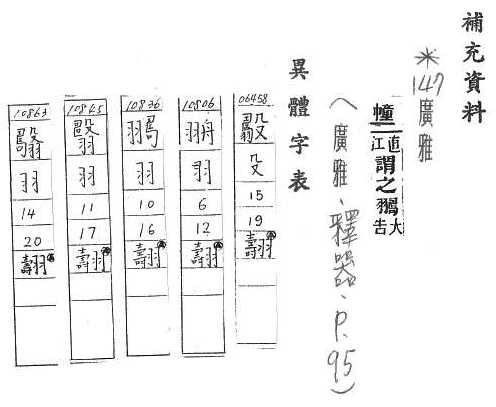 補充資料
*147 廣雅
幢直江謂之翿大告
(廣雅、釋器、P.95)
異體字表
06458
殳
15
19
翿
10806
羽
6
12
翿
10836
羽
10
16
翿
10845
羽
11
17
翿
10863
羽
14
20
翿